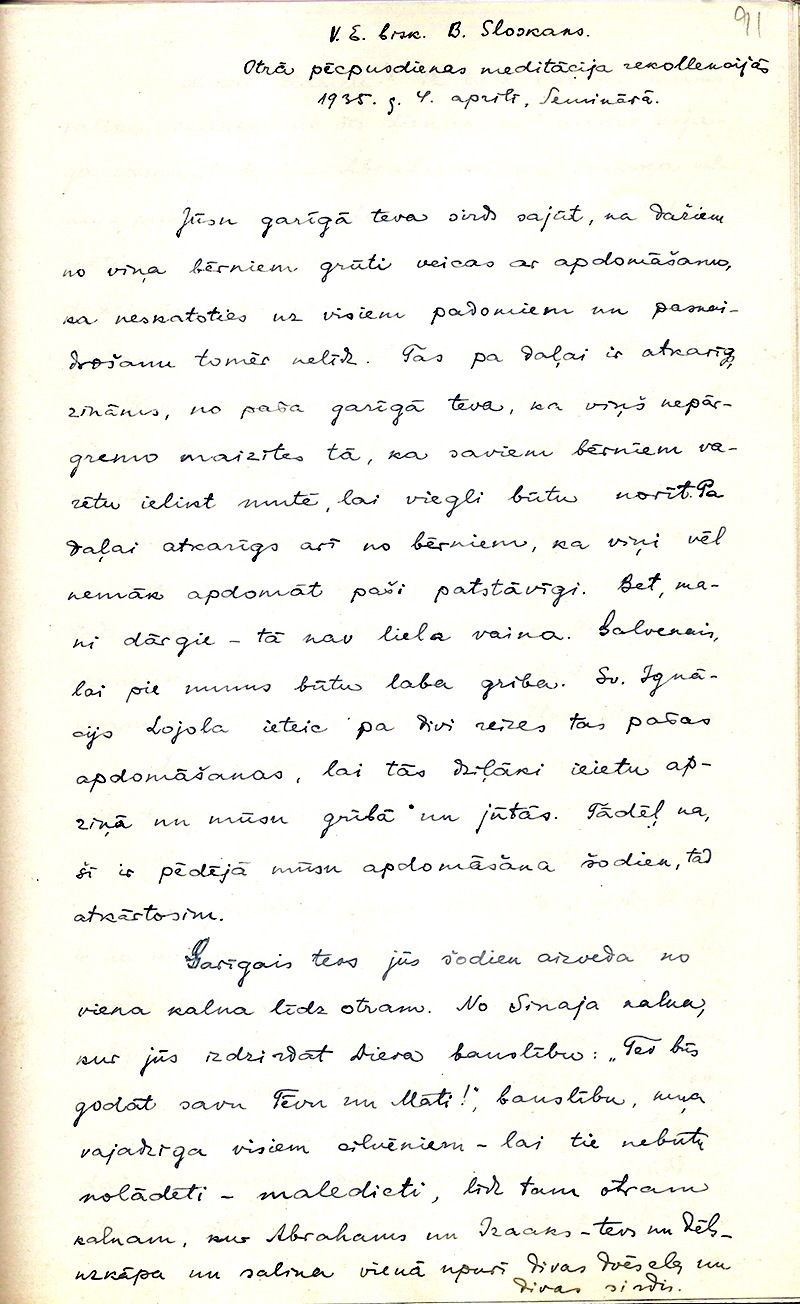 91
V. E. bisk. B. Sloskans.
Otrā pēcpusdienas meditācija rekollekcijās
1935. g. 4. aprīlī, Seminārā.
Jūsu garīgā tēva sirds sajūt, ka dažiem
no viņa bērniem grūti veicas ar apdomāšanu,
ka neskatoties uz visiem padomiem un paskai-
drošanu tomēr nelīdz. Tas pa daļai ir atkarīgs,
zināms, no paša garīgā tēva, ka viņš nepār-
gremo maizītes tā, ka saviem bērniem va-
rētu ielikt mutē, lai viegli būtu norīt. Pa
daļai atkarīgs arī no bērniem, ka viņi vēl
nemāk apdomāt paši patstāvīgi. Bet, ma-
ni dārgie – tā nav liela vaina. Galvenais,
lai pie mums būtu laba griba. Sv. Ignā-
cijs Lojola ieteic pa divi reizes tās pašas
apdomāšanas, lai tās dziļāki ieietu ap-
ziņā un mūsu gribā un jūtās. Tādēļ ka,
šī ir pēdējā mūsu apdomāšana šodien, tad
atkārtosim.
Garīgais tēvs jūs šodien aizveda no
viena kalna līdz otram. No Sinaja kalna,
kur jūs izdzirdāt Dieva bauslību: „Tev būs
godāt savu Tēvu un Māti!", bauslību, kuŗa
vajadzīga visiem cilvēkiem – lai tie nebūtu
nolādēti – maledicti, līdz tam otram
kalnam, kur Abrahams un Izaaks – tēvs un dēls –
uzkāpa un salika vienā upurī divas dvēseles un
divas sirdis.